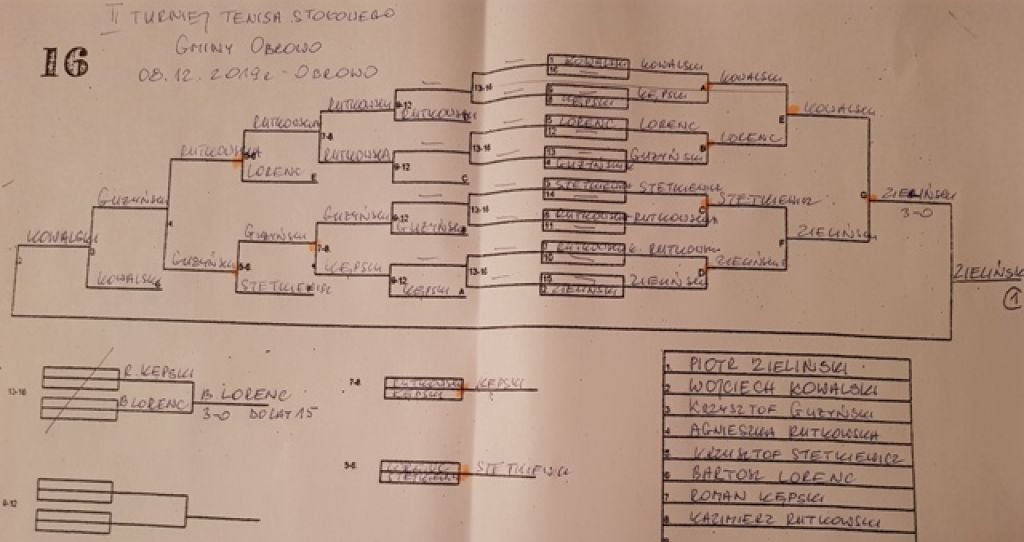 II TURNIEJ TENISA STOŁOWEGO
GMINY OBROWO
08.12.2019r - OBROWO
16
KOWALSKI
KOWALSKI
GUZYŃSKI
RUTKOWSKA
GUZYŃSKI
RUTKOWSKA
LORENC E
GUZYŃSKI
STETKIEWICZ
RUTKOWSKA
RUTKOWSKA
GUZYŃSKI
KĘPSKI
RUTKOWSKI
RUTKOWSKI
RUTKOWSKA
C
GUZYŃSKI
GUZYŃSKI
KĘPSKI A
9-12
9-12
9-12
9-12
7-8
7-8
5-6
5-6
13-16
13-16
13-16
13-16
1 KOWALSKI
16
KĘPSKI
5 LORENC
12
13
4 GUZYŃSKI
3 STETKIEWICZ
14
6 RUTKOWSKA
11
7 RUTKOWSKI
10
15
2 ZIELIŃSKI
KOWALSKI
KĘPSKI
LORENC
GUZYŃSKI
STETKIEWICZ
RUTKOWSKA
K. RUTKOWSKI
ZIELIŃSKI
A KOWALSKI
B LORENC
C STETKIEWICZ
D ZIELIŃSKI
E KOWALSKI
F ZIELIŃSKI
G ZIELIŃSKI
3-0
ZIELIŃSKI
1
13-16
R. KĘPSKI
B LORENC
B. LORENC
3-0 DO LAT 15
9-12
7-8
RUTKOWSKI
KĘPSKI
KĘPSKI
5-6
LORENC
STETKIEWICZ
STETKIEWICZ
1 PIOTR ZIELIŃSKI
2 WOJCIECH KOWALSKI
3 KRZYSZTOF GUZYŃSKI
4 AGNIESZKA RUTKOWSKA
5 KRZYSZTOF STETKIEWICZ
6 BARTOSZ LORENC
7 ROMAN KĘPSKI
8 KAZIMIERZ RUTKOWSKI